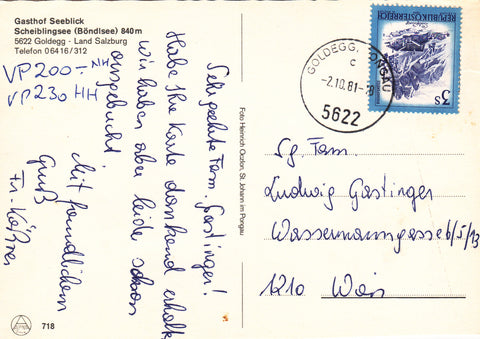 Gasthof Seeblick
Scheiblingsee (Böndlsee) 840 m
5622 Goldegg - Land Salzburg
Telefon 06416/312
VP 200.- NH
VP 230 HH
Sehr geehrte Fam. Gastinger!
Habe Ihre Karte dankend erhalten
wir haben aber leider schon
ausgebucht.
Mit freundlichem
Gruß
Foto Heinrich Oczlon, St. Johann im Pongau
718
GOLDEGG, PONGAU
c
-2.10.81-
5622
REPUBLIK ÖSTERREICH
3 S
Sg. Fam.
Ludwig Gastinger
Wassermanngasse 6/5/13
1210 Wien